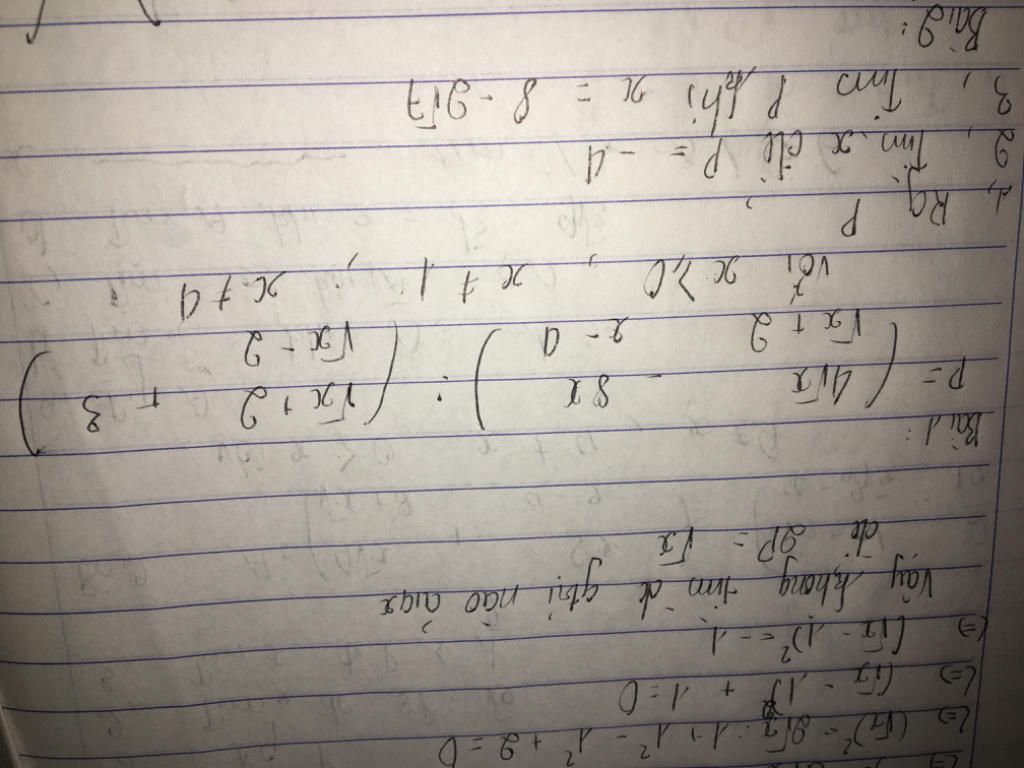 (⇒) (√x)² - 2√x . 1 + 1² - 1² + 2 = 0
(⇒) (√x - 1)² + 1 = 0
(⇒) (√x - 1)² = -1
Vậy không tìm đc gtrị nào của x
để 2P = √x
Bài 1:
P = ( 4√x / √x + 2 - 8x / x - 4 ) : ( √x + 2 / √x - 2 + 3 )
với x ≥ 0, x ≠ 1, x ≠ 4
1, Rg P
2, Tìm x để P = -4
3, Tìm P khi x = 8 - 2√7
Bài 2: